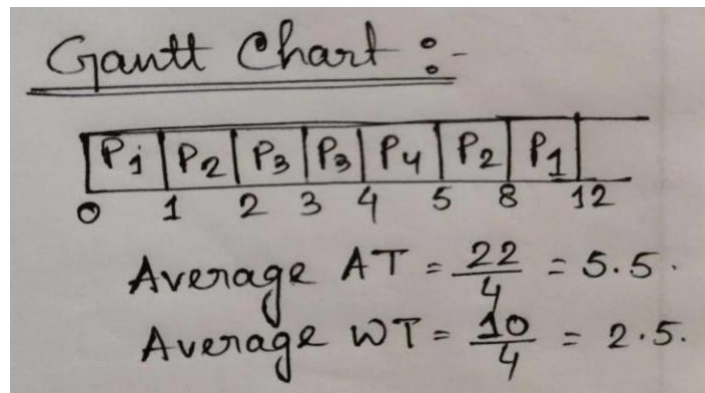 Gantt Chart :-
P1 P2 P3 P3 P4 P2 P1
0 1 2 3 4 5 8 12
Average AT = 22/4 = 5.5.
Average WT = 10/4 = 2.5.